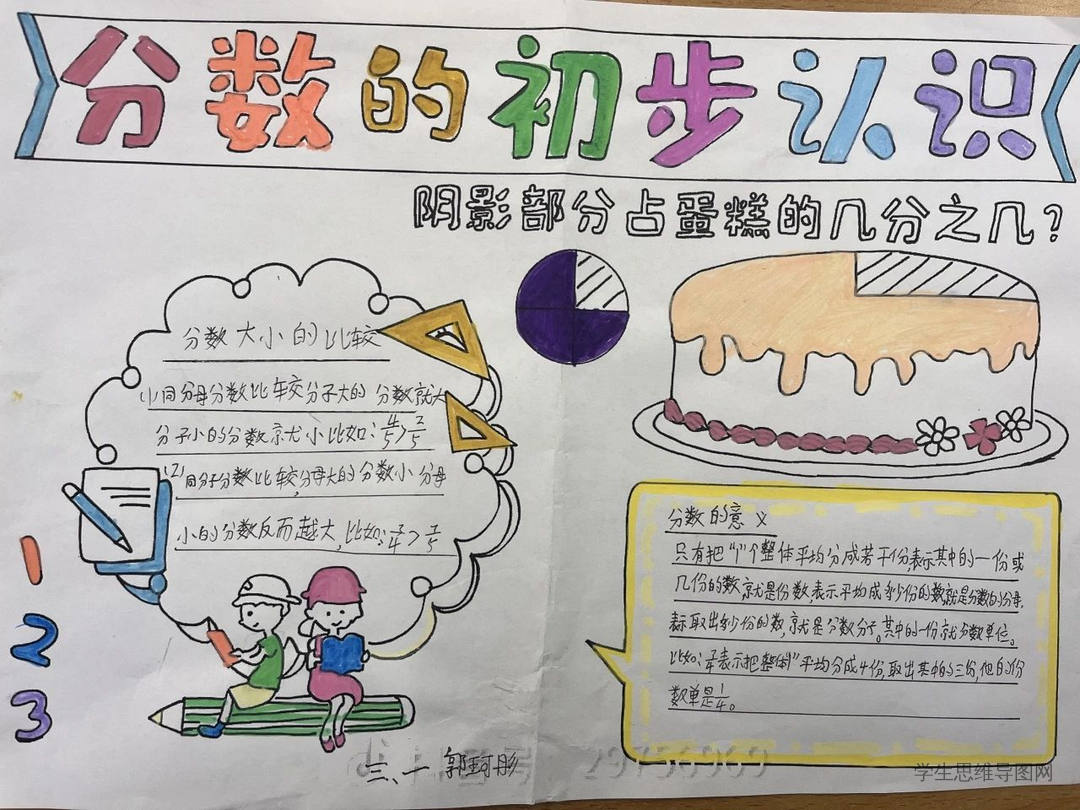 分数的初步认识
阴影部分占蛋糕的几分之几？
分数大小的比较
(1)同分母分数比较分子大的分数就大
分子小的分数就小比如：4/5>2/5
(2)同分子分数比较，分母大的分数小分母
小的分数反而越大，比如：
分数的意义
只有把“1”个整体平均分成若干份，表示其中的一份或
几份的数就是份数，表示平均成多少份的数就是分数的分母，
表示取出多少份的数，就是分数分子。其中的一份就分数单位。
比如：3/4表示把整体“1”平均分成4份，取出其中的三份，他的份
数单是1/4。
1
2
3
三、一
学生思维导图网